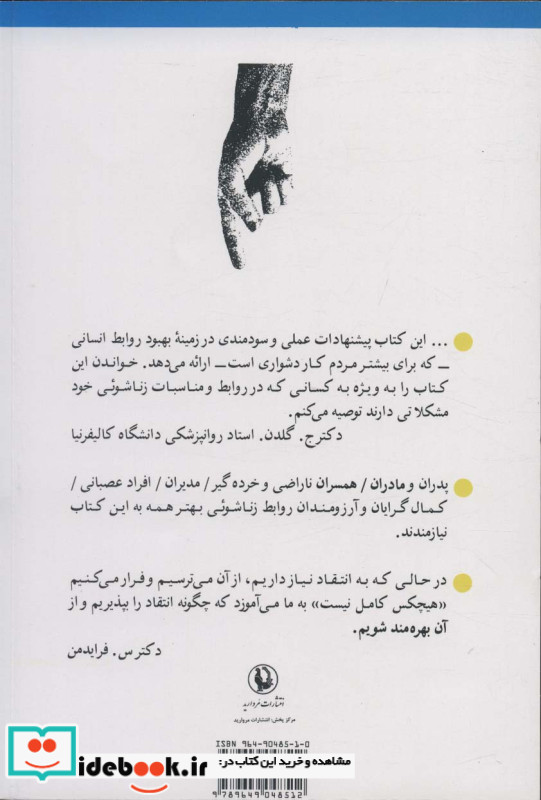 ... این کتاب پیشنهادات عملی و سودمندی در زمینهٔ بهبود روابط انسانی
ــ که برای بیشتر مردم کار دشواری است ــ ارائه می‌دهد. خواندن این
کتاب را به ویژه به کسانی که در روابط و مناسبات زناشوئی خود
مشکلاتی دارند توصیه می‌کنم.
دکتر ج. گلدن. استاد روانپزشکی دانشگاه کالیفرنیا
پدران و مادران / همسران ناراضی و خرده گیر / مدیران / افراد عصبانی /
کمال گرایان و آرزومندان روابط زناشوئی بهتر همه به این کتاب
نیازمندند.
در حالی که به انتقاد نیاز داریم، از آن می‌ترسیم و فرار می‌کنیم
«هیچکس کامل نیست» به ما می‌آموزد که چگونه انتقاد را بپذیریم و از
آن بهره‌مند شویم.
دکتر س. فرایدمن
انتشارات مروارید
مرکز پخش: انتشارات مروارید
ISBN 964-90485-1-0
مشاهده و خرید این کتاب در:
idebook.ir
9789649048512